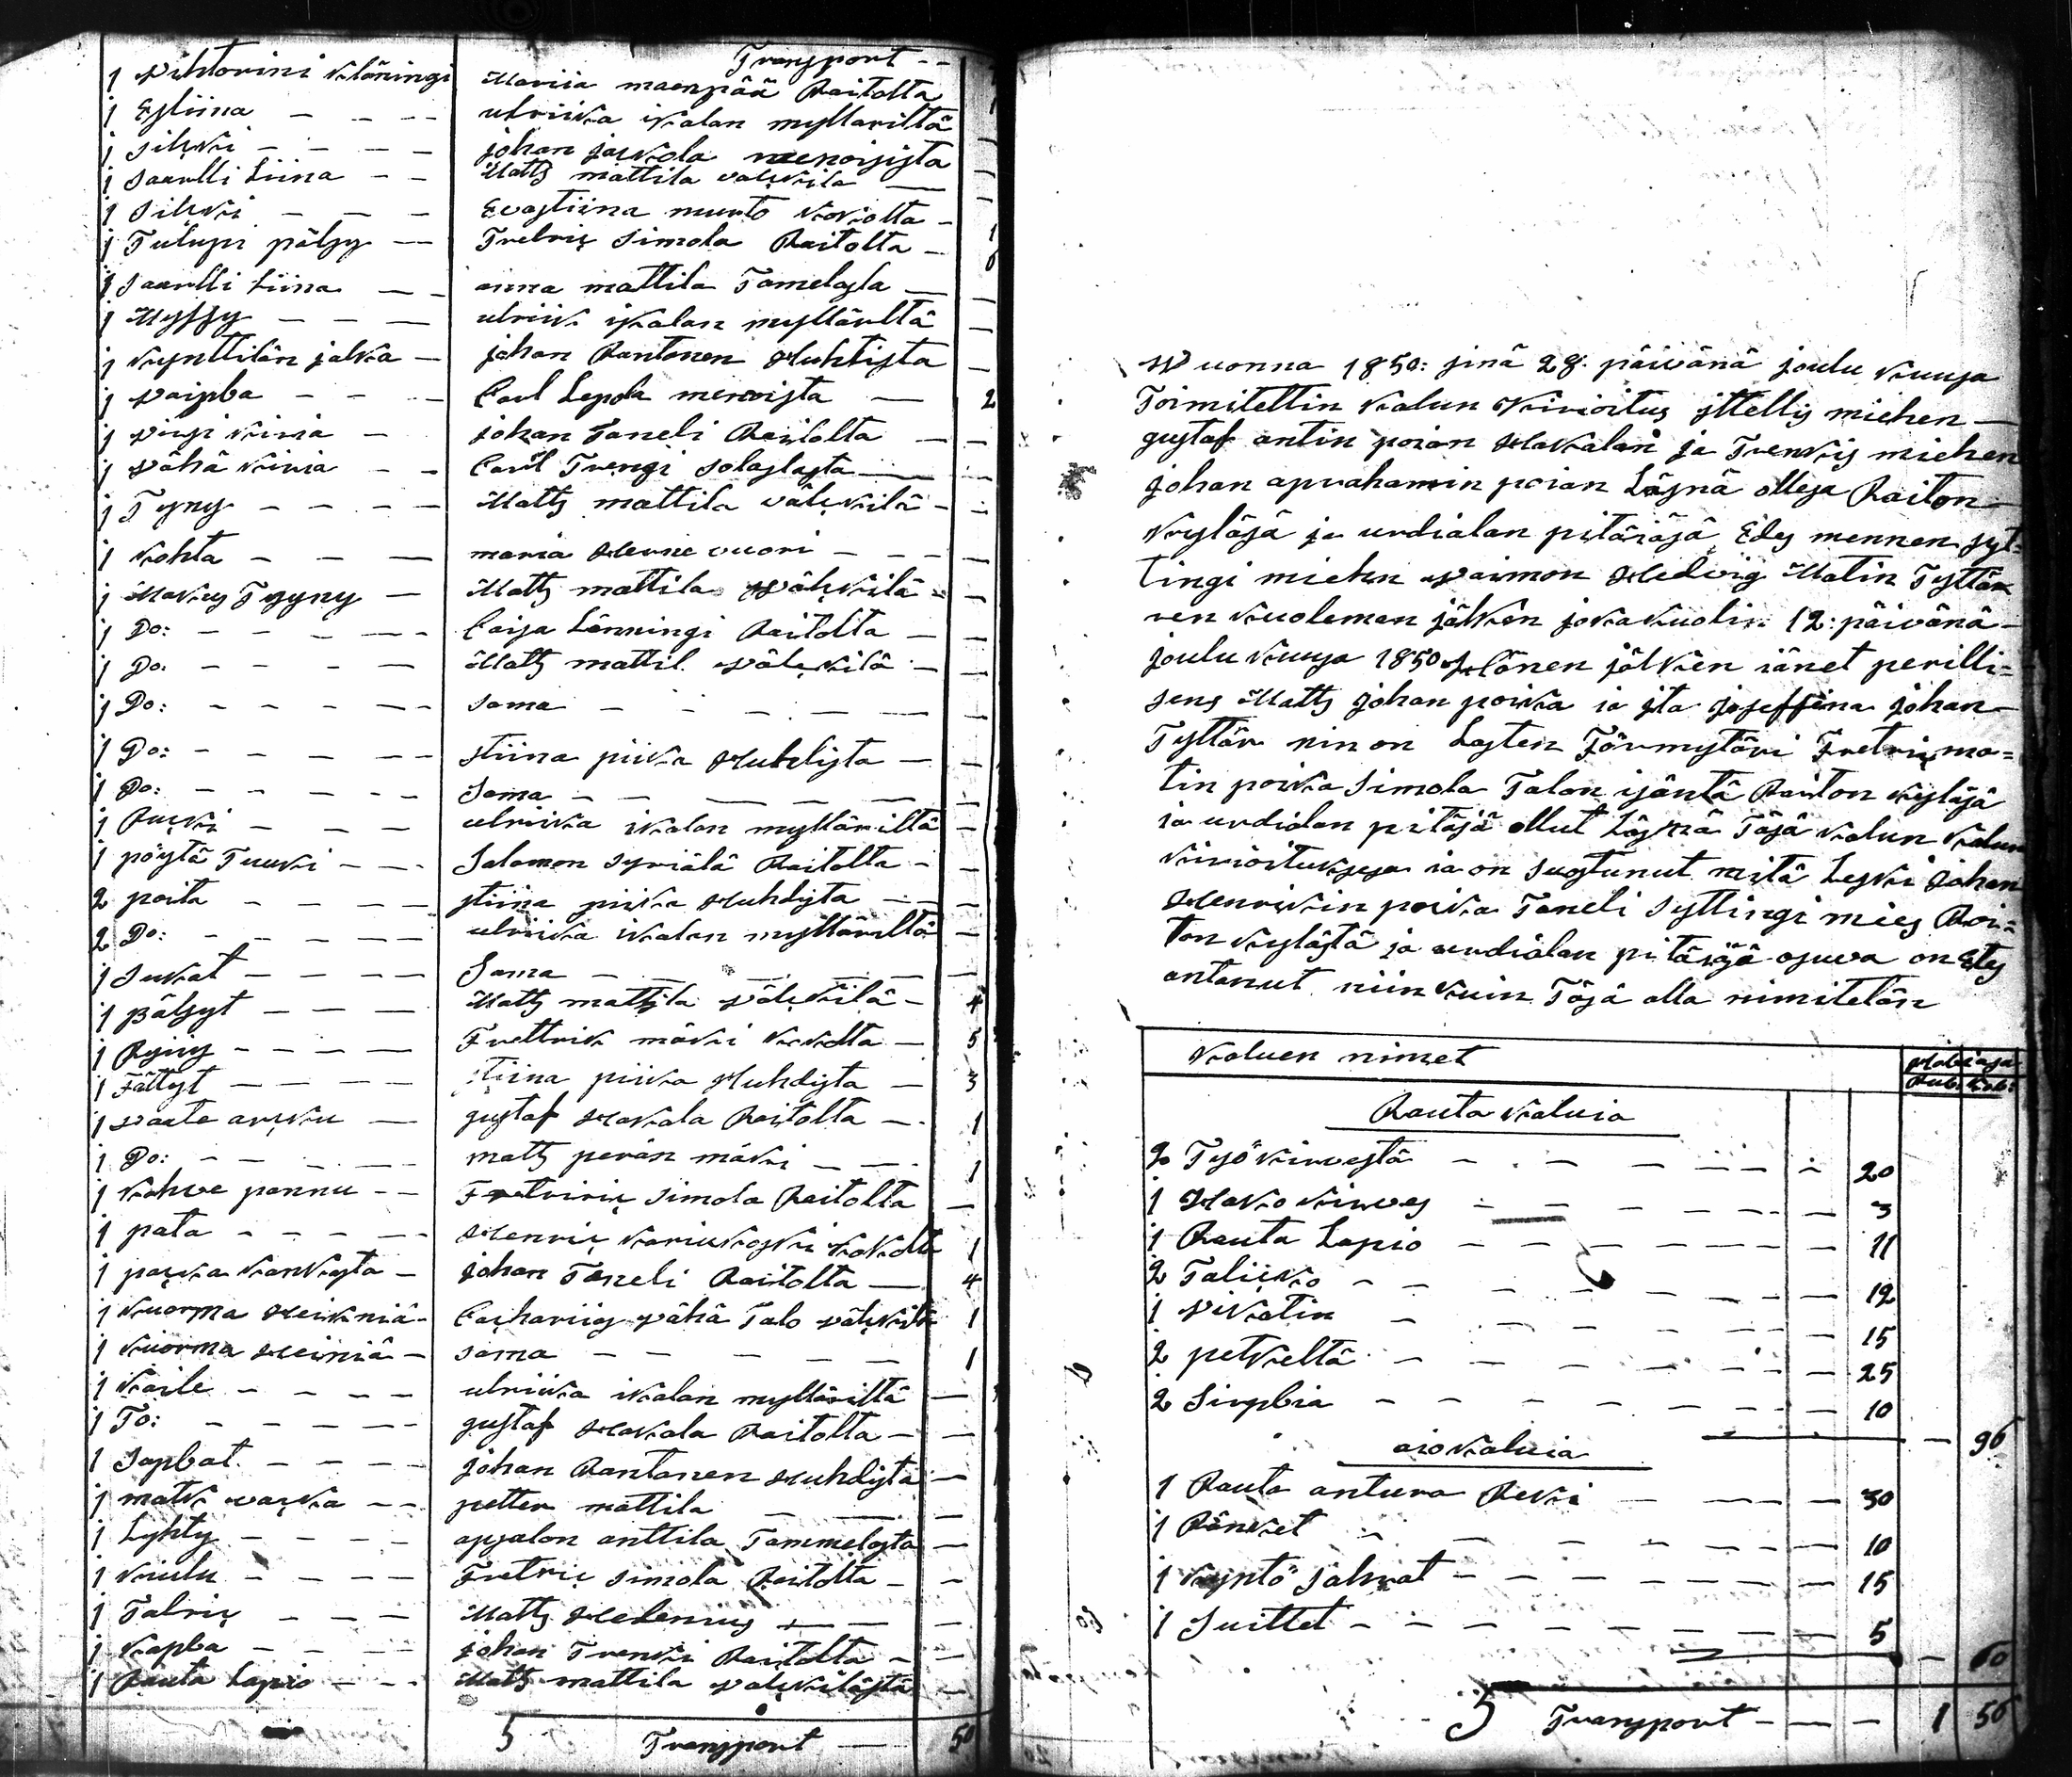 Transport --
1 Vihtorini klåningi Maria maenpää Raitolta
1 Estiina - - -- ulriika ikalan myllariltä
1 silkki - - - - johan jaskola menoisista
1 saarlli Liina - - Matts mattila valskila
1 silkki - - - Evastiina murto kokolta -
1 Tulupi pälsy -- Fretric Simola Raitolta -
1 saarlli Liina -- anna mattila Tamelasta
1 Myssy - - - ulriik ikalan myllärltä
1 kynttilän jalka - johan Rantanen Huhtista
1 vaipba - - - Carl Lepola menoista — 2
1 kiria - johan Taneli Raitolta
1 vähä kiria - - Carl Trengi
1 Tyny - - - - Matts mattila välskilä -
1 kohta - - - maria Herne vuori - - -
1 Makus Tyyny - Matts mattila välskilä -
1 Do: - - - -- Caisa Lönningi Raitolta -
1 Do: - - - - Matts mattil välskilä -
1 Do: - - - - sama - - - - -
1 Do: - - - - stiina piika Huhdista -
1 Do: - - - - Sama - - - -
1 - - - ulriika ikalan mylläriltä -
1 pöytä Tuuki - - - Salamon syriälä Raitolta -
2 paita - - - - stiina piika Huhdista - -
2 Do: - - - - ulriika ikalan myllärltä -
1 sukat - - - - Sama - - - -
1 pälsyt - - - Matts mattila välskilä - 4
1 Ryiyy - - - - Frettrik mäki kokolta - 5
1 Fältyt - - - - stiina piika Huhdista - 3
1 vaate arkku - gustaf Hakala Raitolta - 1
1 Do: - - - - matts perän mäki - - 1
1 kahve pannu - - Fretriic Simola Raitolta -
1 pata - - - - Henric kariukoski kokolta 1
1 kankasta - johan Taneli Raitolta - 4
1 kuorma Heikniä - Cachariis vähä Talo välskilä 1
1 kuorma Heiniä - sama - - - - - 1
1 - - - - ulriika ikalan mylläriltä -
1 To: - - - - gustaf Hakala Raitolta -
1 Sapbat - - - - johan Rantanen Huhdista
1 matk - - petter mattila
1 Lyhty - - - - apsalon anttila Tammelasta -
1 kiulu - - - - Fretric simola Raitolta - -
1 Talric - - - Matts Helenius - -
1 kapba - - - johan Trenki Raitolta - -
1 Rauta Lapio - - Matts mattila valskilästä
5 Transport — 50
Wuonna 1850: sinä 28. päivänä joulu kuusa
Toimitettin kalun kirioitus ittellis miehen —
gustaf antin poian Hakalan ja Trenkis miehen
johan aprahamin poian Läsnä ollesa Raiton—
kyläsä ja urdialan pitäiäsä, Edes mennen syt-
tingi miehn waimon Hedvig Matin Tyttär
ren kuoleman jälken joka kuolin 12: päivänä -
joulu kuusa 1850 Hänen jälkien iänet perilli=
sens Matts johan poika ia ita joseffina johan—
Tyttär nin on Lasten Förmytäri Fretric ma=
tin poika Simola Talon isäntä Raiton kyläsä
ia urdialan pitäjä ollut Läsnä Täsä kalun kalun
kirioituksesa ia on suostunut mitä Leski johan
Henrikin poika Taneli syttingi mies Rai=
ton kylästä ja urdialan pitäiäsä asuva on Ets
antanut niin kuin Täsä alla nimitetän
Kaluen nimet
Rub. kob:
Rauta kaluia
2 Työkirvestä - - - - - - 20
1 Hako kirves - - - - - - 3
1 Rauta Lapio - - - - - - 11
2 Taliiko - - - - - - 12
1 Vikatin - - - - - - 15
2 petkeltä - - - - - - 25
2 Sirpbia - - - - - - 10
— 96
aiokaluia
1 Rauta antura Reki - - - - 30
1 Ränket - - - - - - 10
1 kyntö Sahrat - - - - - - 15
1 Suittet - - - - - - 5
— 60
5 Transport - — — 1 56